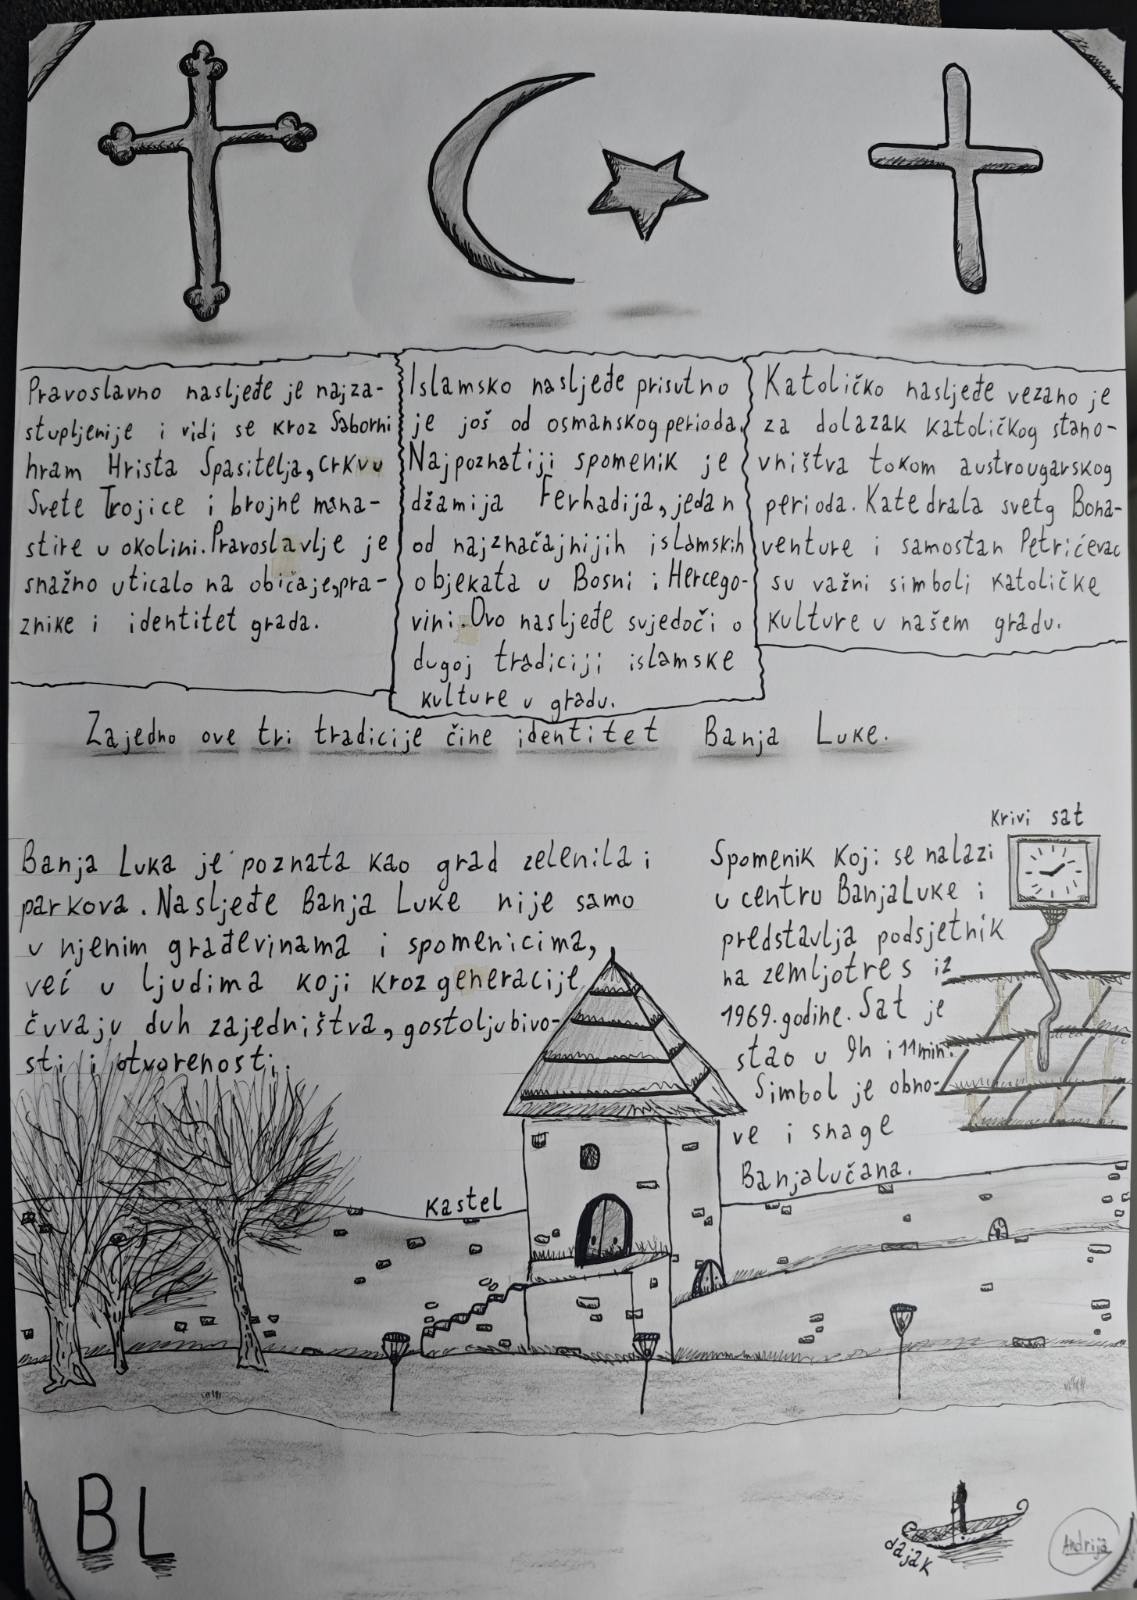 Pravoslavno nasljeđe je najza-
stupljenije i vidi se kroz Saborni
hram Hrista Spasitelja, crkvu
Svete Trojice i brojne mana-
stire u okolini. Pravoslavlje je
snažno uticalo na običaje, pra-
znike i identitet grada.
Islamsko nasljeđe prisutno
je još od osmanskog perioda.
Najpoznatiji spomenik je
džamija Ferhadija, jedan
od najznačajnijih islamskih
objekata u Bosni i Hercego-
vini. Ovo nasljeđe svjedoči o
dugoj tradiciji islamske
kulture u gradu.
Katoličko nasljeđe vezano je
za dolazak katoličkog stano-
vništva tokom austrougarskog
perioda. Katedrala svetg Bona-
venture i samostan Petrićevac
su važni simboli katoličke
kulture u našem gradu.
Zajedno ove tri tradicije čine identitet Banja Luke.
Banja Luka je poznata kao grad zelenila i
parkova. Nasljeđe Banja Luke nije samo
u njenim građevinama i spomenicima,
već u ljudima koji kroz generacije
čuvaju duh zajedništva, gostoljubivo-
sti i otvorenosti.
Krivi sat
Spomenik koji se nalazi
u centru BanjaLuke i
predstavlja podsjetnik
na zemljotres iz
1969. godine. Sat je
stao u 9h i 11min.
Simbol je obno-
ve i snage
Banjalučana.
Kastel
BL
dajak
Andrija